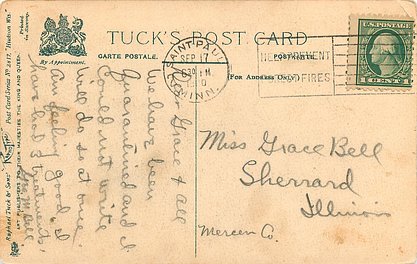 TUCK'S POST CARD
CARTE POSTALE.
POSTKARTE.
For Address Only.
By Appointment.
Printed
in Germany.
Post Card Series No 2417. "Hudson
Raphael Tuck & Sons'
ART PUBLISHERS TO THEIR MAJESTIES THE KING AND QUEEN.
SAINT PAUL
SEP 17
MINN.
FIRES
U.S. POSTAGE
1 CENT 1
Dear Grace & all
We have been
Quarantined and I
could not write
will do so at once.
Am feeling good. I
have had 3 treatments.
M Bell
Miss Grace Bell
Sherrard
Illinois
Mercer Co.